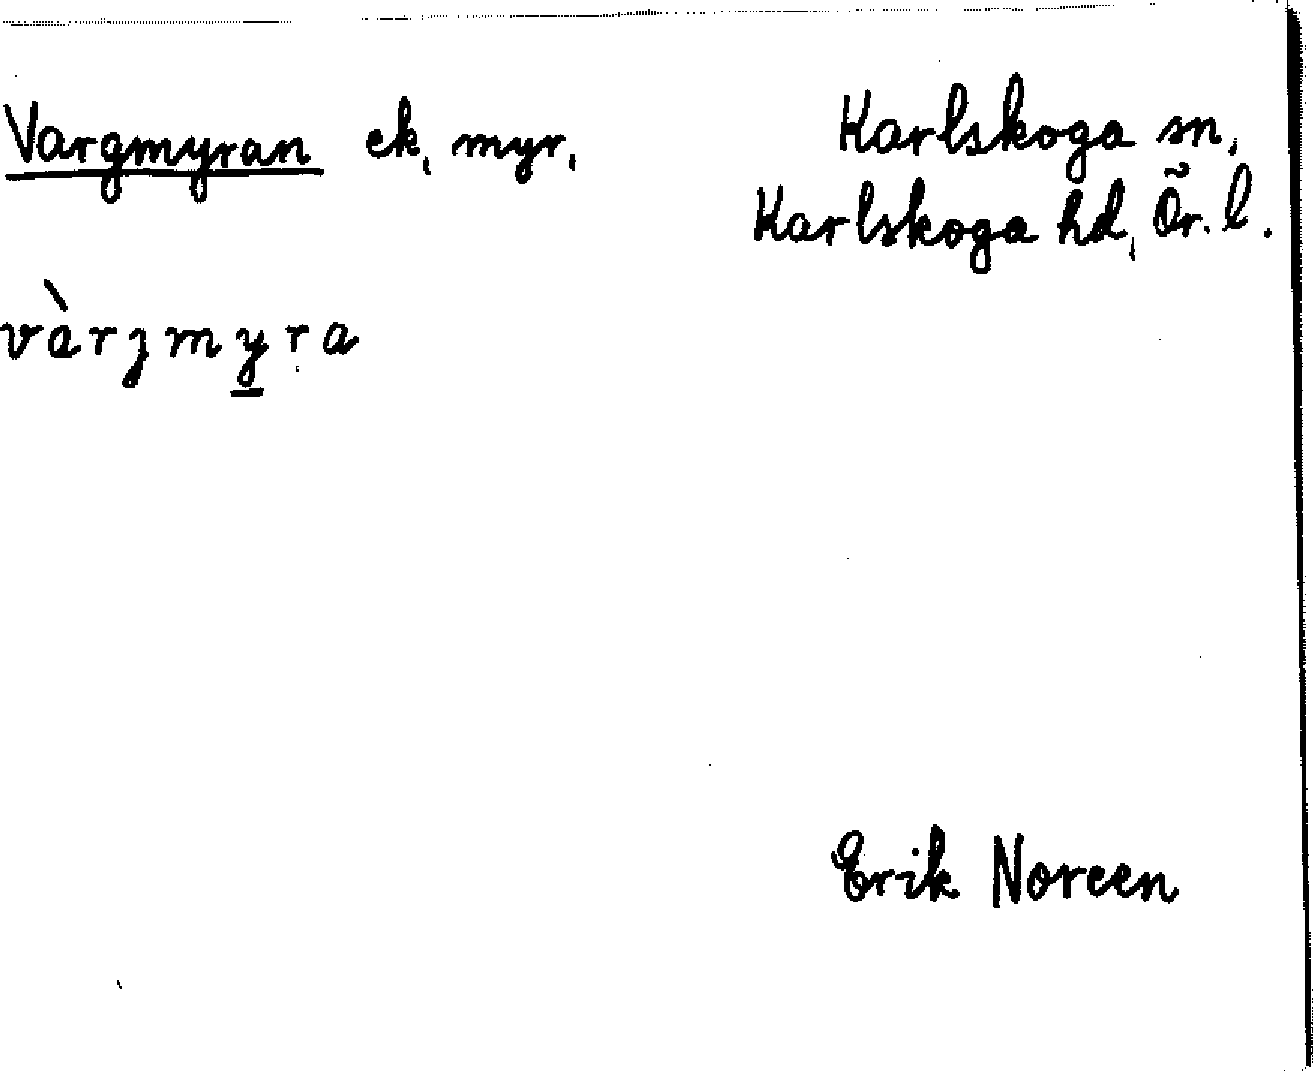 Vargmyran ek, myr,
Karlskoga sn,
Karlskoga hd, Ör. l.
vàrjmy̲ra
Erik Noreen